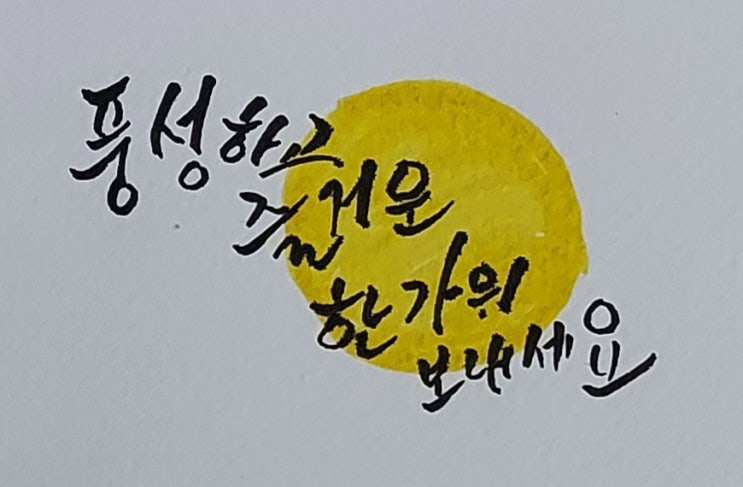 풍성하고
즐거운
한가위
보내세요